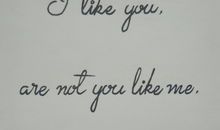 I like you,
are not you like me.